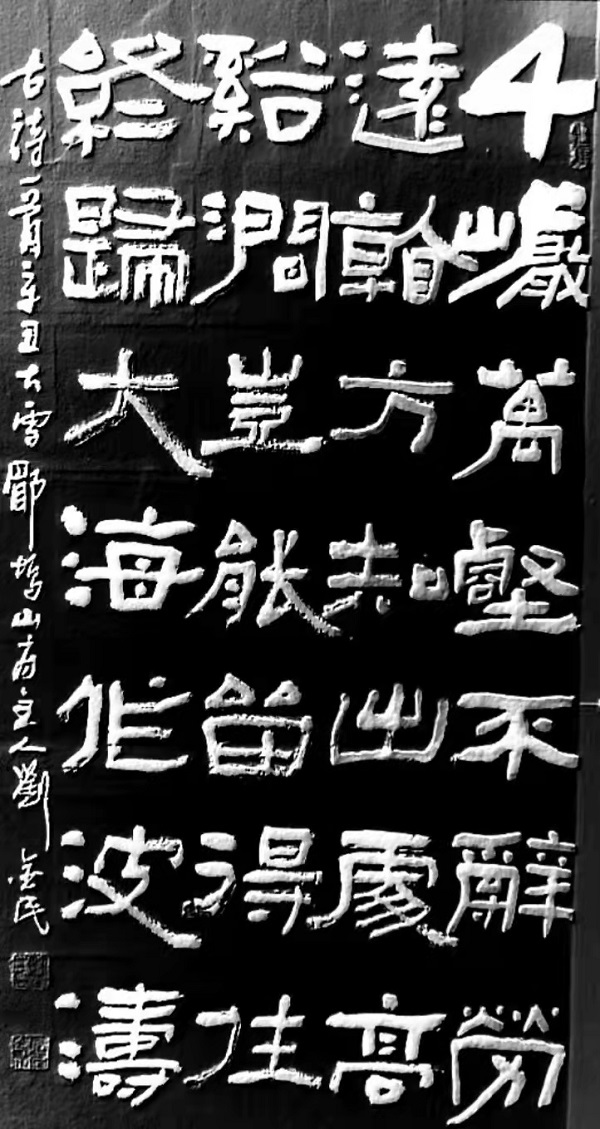 千巖萬壑不辭勞
遠看方知出處高
谿澗豈能留得住
終歸大海作波濤
古詩一首辛丑大雪山房主人劉金民